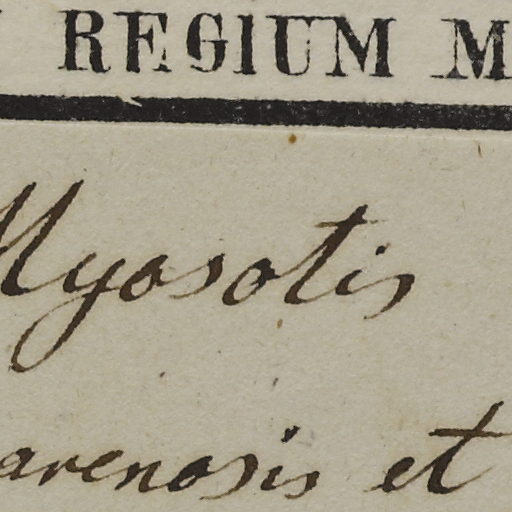 REGIUM M
Myosotis
arenosis et